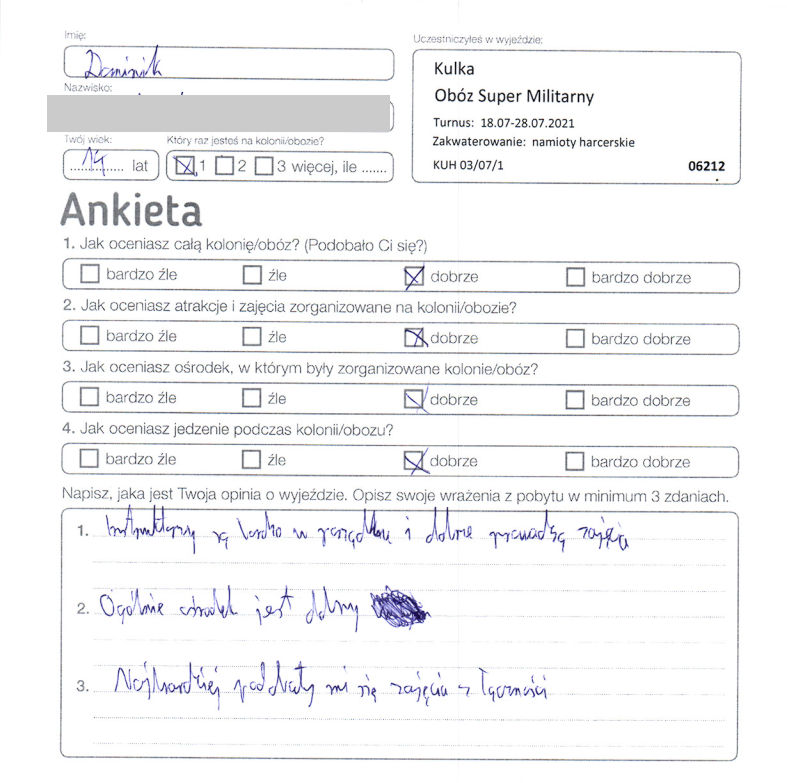 Imię:
Uczestniczyłeś w wyjeździe:
Dominik
Kulka
Nazwisko:
Obóz Super Militarny
Turnus: 18.07-28.07.2021
Twój wiek:
Który raz jesteś na kolonii/obozie?
Zakwaterowanie: namioty harcerskie
14 lat
1 2 3 więcej, ile .......
KUH 03/07/1 06212
Ankieta
1. Jak oceniasz całą kolonię/obóz? (Podobało Ci się?)
bardzo źle źle dobrze bardzo dobrze
2. Jak oceniasz atrakcje i zajęcia zorganizowane na kolonii/obozie?
bardzo źle źle dobrze bardzo dobrze
3. Jak oceniasz ośrodek, w którym były zorganizowane kolonie/obóz?
bardzo źle źle dobrze bardzo dobrze
4. Jak oceniasz jedzenie podczas kolonii/obozu?
bardzo źle źle dobrze bardzo dobrze
Napisz, jaka jest Twoja opinia o wyjeździe. Opisz swoje wrażenia z pobytu w minimum 3 zdaniach.
1. Instruktorzy są bardzo w porządku i dobrze prowadzą zajęcia
2. Ogólnie ośrodek jest dobry
3. Najbardziej podobały mi się zajęcia z łączności